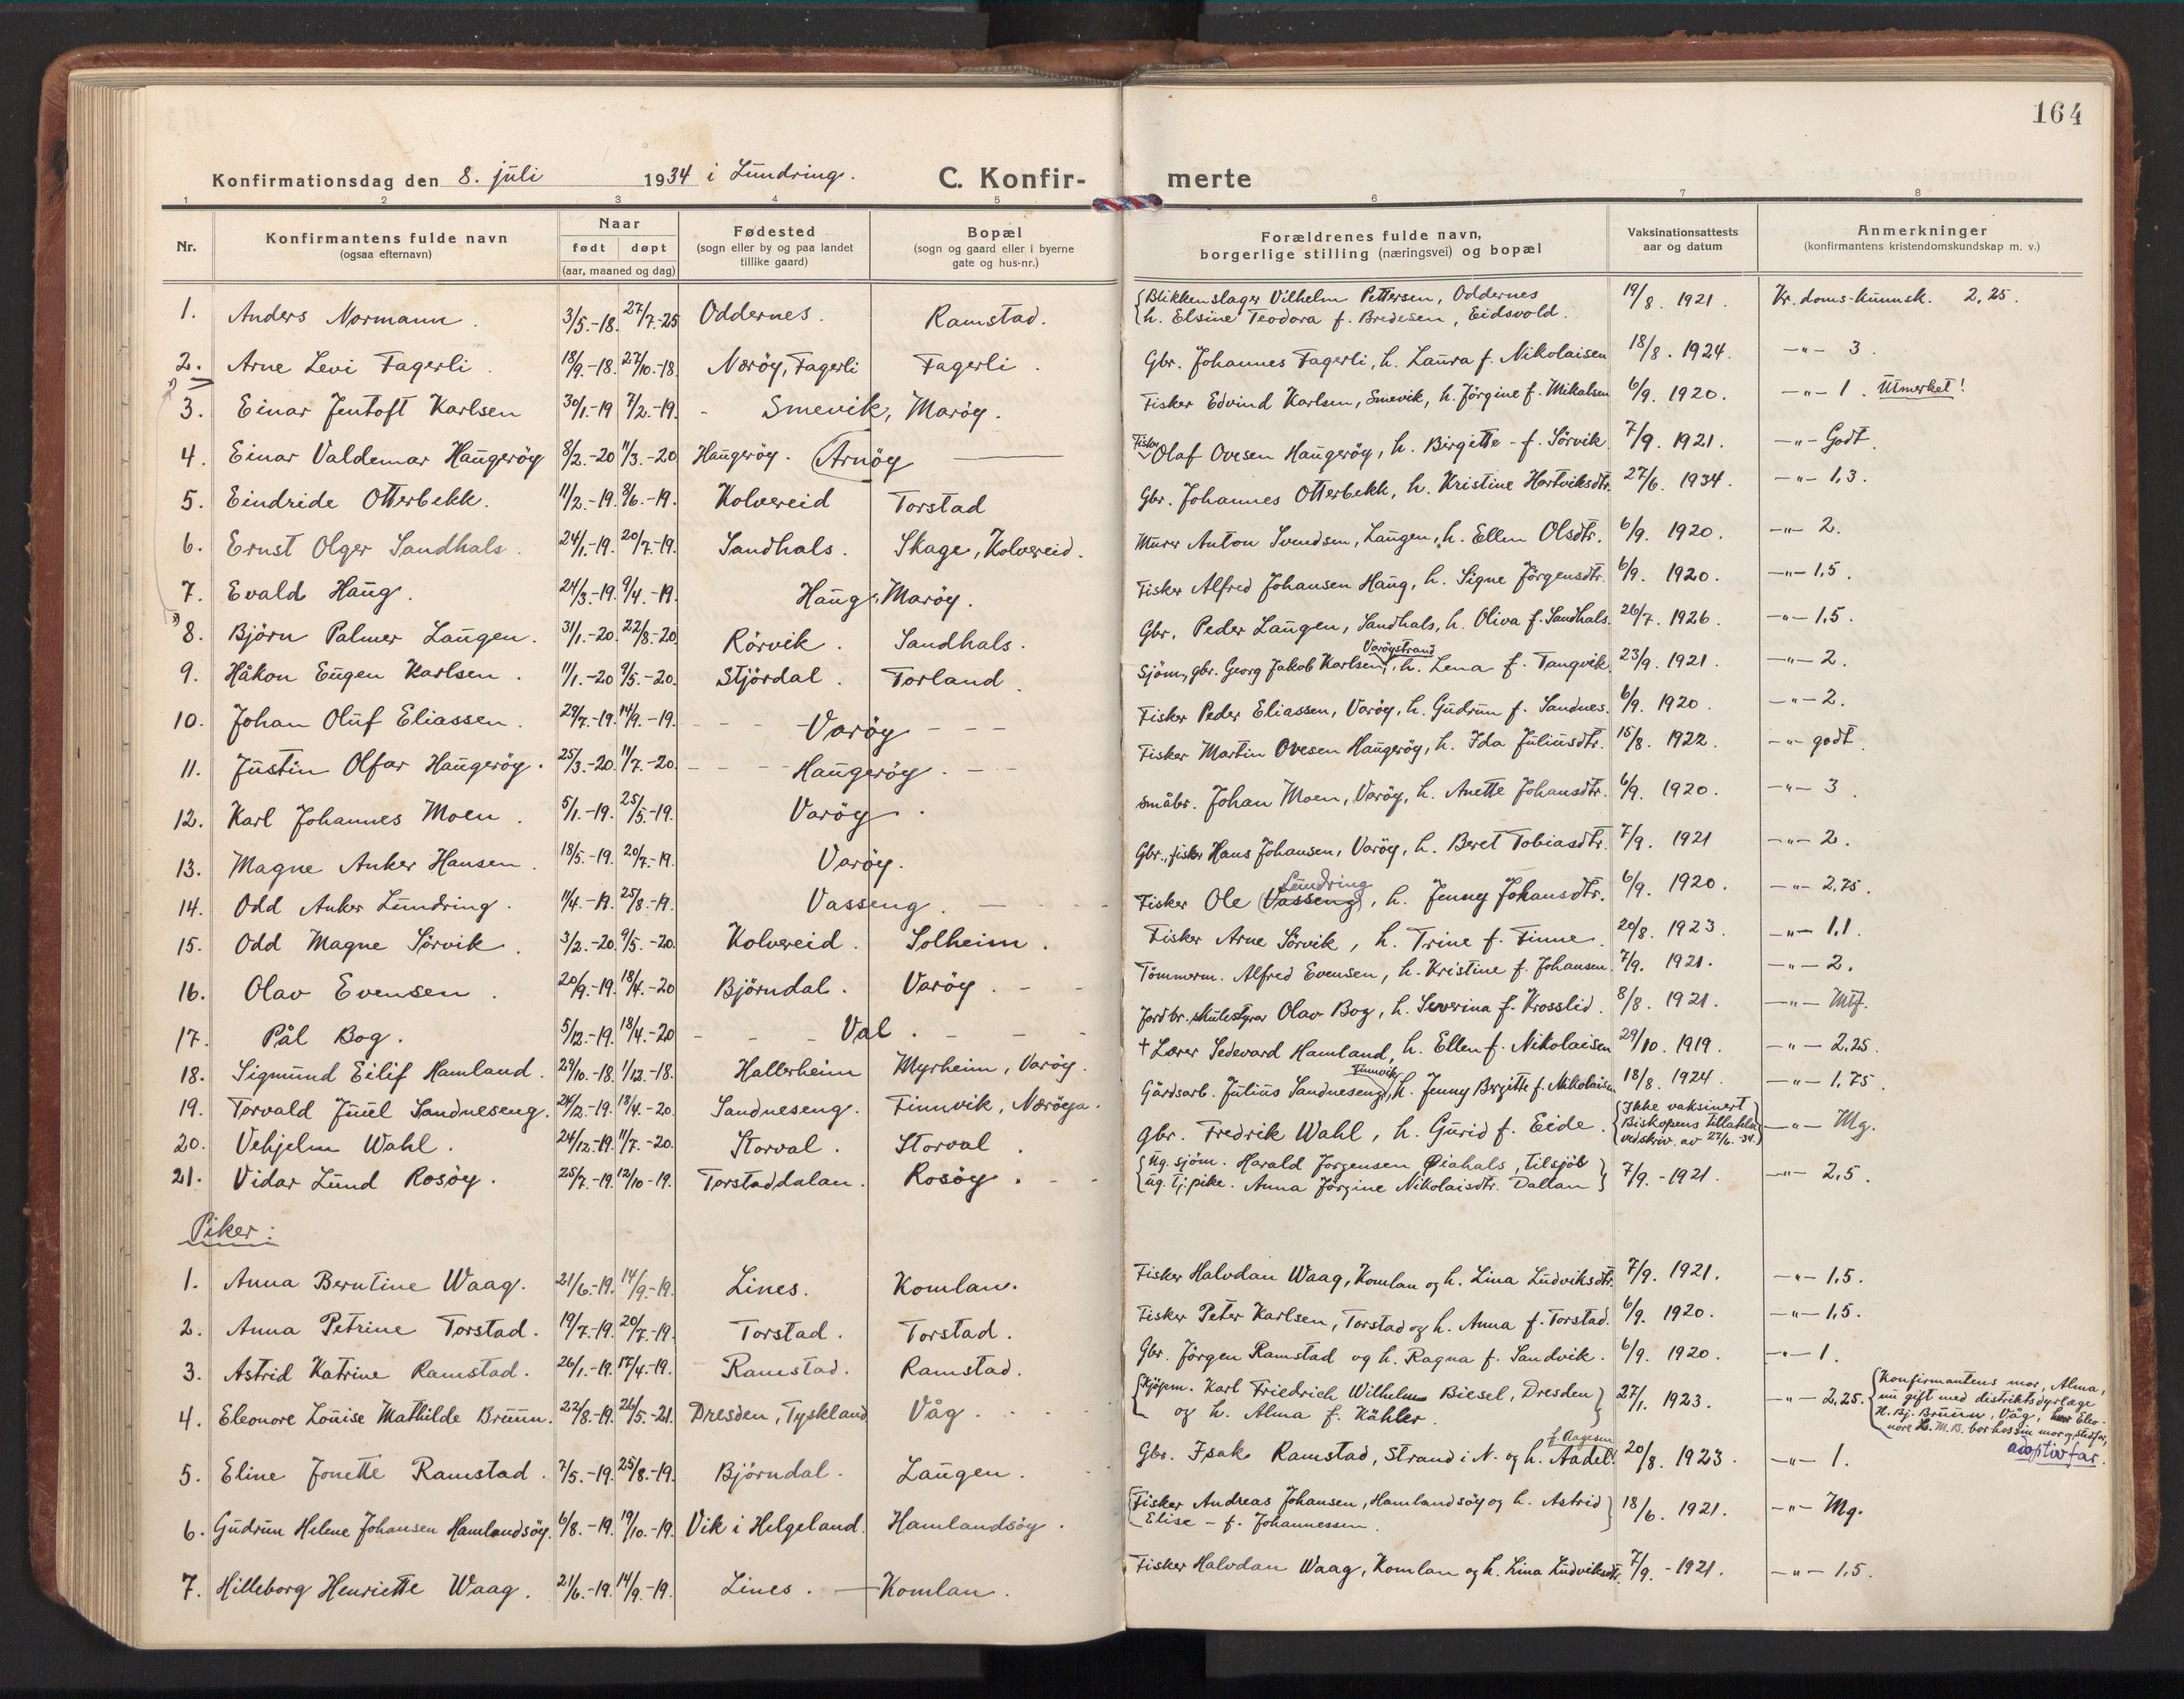 164
Konfirmationsdag den 8. juli 1934 i Lundring. C. Konfir- merte
1 2 3 4 5 6 7 8
Nr. Konfirmantens fulde navn (ogsaa efternavn) Naar født døpt (aar, maaned og dag) Fødested (sogn eller by og paa landet tillike gaard) Bopæl (sogn og gaard eller i byerne gate og hus-nr.) Forældrenes fulde navn, borgerlige stilling (næringsvei) og bopæl Vaksinationsattests aar og datum Anmerkninger (konfirmantens kristendomskundskap m. v.)
1. Anders Normann. 3/5.-18. 27/7.-25 Oddernes. Ramstad. Blikkenslager Vilhelm Pettersen, Oddernes h. Elsine Teodora f. Bredesen, Eidsvold. 19/8. 1921. Kr.doms-kunnsk. 2,25.
2. Arne Levi Fagerli. 18/9.-18. 27/10.-18. Næröy, Fagerli Fagerli. Gbr. Johannes Fagerli, h. Laura f. Nikolaisen 18/8. 1924. -"- 3.
3. Einar Jentoft Karlsen 30/1.-19 7/2.-19. - Smevik, Maröy. Fisker Edvind Karlsen, Smevik, h. Jörgine f. Mikalsen 6/9. 1920. -"- 1. Utmerket!
4. Einar Valdemar Haugeröy 8/2.-20 11/3.-20 Haugeröy. Arnöy Fisker Olaf Ovesen Haugeröy, h. Birgitte - f. Sörvik 7/9. 1921. -"- Godt.
5. Eindride Otterbekk. 11/2.-19. 8/6.-19. Kolvereid Torstad Gbr. Johannes Otterbekk, h. Kristine Hartviksdtr. 27/6. 1934. -"- 1,3.
6. Ernst Olger Sandhals. 24/1.-19. 20/7.-19. Sandhals. Skage, Kolvereid. Murer Anton Svendsen, Laugen, h. Ellen Olsdtr. 6/9. 1920. -"- 2.
7. Evald Haug. 24/3.-19. 9/4.-19. Haug, Maröy. Fisker Alfred Johansen Haug, h. Signe Jörgensdtr. 6/9. 1920. -"- 1,5.
8. Björn Palmer Laugen. 31/1.-20. 22/8.-20. Rörvik. Sandhals. Gbr. Peder Laugen, Sandhals, h. Oliva f. Sandhals. 26/7. 1926. -"- 1,5.
9. Håkon Eugen Karlsen. 11/1.-20 9/5.-20. Stjördal. Torland. Sjöm., gbr. Georg Jakob Karlsen, Varöystrand, h. Lena f. Tangvik 23/9. 1921. -"- 2.
10. Johan Oluf Eliassen. 29/7.-19. 14/9.-19. - - - Varöy - - - Fisker Peder Eliassen, Varöy, h. Gudrun f. Sandnes. 6/9. 1920. -"- 2.
11. Justin Olfar Haugeröy. 25/3.-20. 11/7.-20. - - - Haugeröy. - - Fisker Martin Ovesen Haugeröy, h. Ida Juliusdtr. 15/8. 1922. -"- godt.
12. Karl Johannes Moen. 5/1.-19. 25/5.-19. Varöy. Småbr. Johan Moen, Varöy, h. Anette Johansdtr. 6/9. 1920. -"- 3.
13. Magne Anker Hansen. 18/5.-19. 20/7.-19. Varöy. Gbr., fisker Hans Johansen, Varöy, h. Beret Tobiasdtr. 7/9. 1921 -"- 2.
14. Odd Anker Lundring. 11/4.-19. 25/8.-19. Vasseng. Fisker Ole (Vasseng) Lundring, h. Jenny Johansdtr. 6/9. 1920. -"- 2,75.
15. Odd Magne Sörvik. 3/2.-20. 9/5.-20. Kolvereid. Solheim. Fisker Arne Sörvik, h. Trine f. Finne. 20/8. 1923. -"- 1,1.
16. Olav Evensen. 20/9.-19. 18/4.-20 Björndal. Varöy. - - Tömmerm. Alfred Evensen, h. Kristine f. Johansen. 7/9. 1921. -"- 2.
17. Pål Bog. 5/12.-19. 18/4.-20 - - - Val. - - - Jordbr. skulestyrar Olav Bog, h. Severina f. Krosslid. 8/8. 1921. -"- Mtf.
18. Sigmund Eilif Hamland. 29/10.-18. 1/12.-18. Hallerheim Myrheim, Varöy. † Lærer Sedevard Hamland, h. Ellen f. Nikolaisen 29/10. 1919. -"- 2,25.
19. Torvald Juul Sandneseng. 24/2.-19. 18/4.-20. Sandneseng. Finnvik, Næröya. Gårdsarb. Julius Sandneseng, Finnvik, h. Jenny Birgitte f. Nikolaisen 18/8. 1924. -"- 1,75.
20. Vehjelm Wahl. 24/12.-19. 11/7.-20. Storval. Storval. gbr. Fredrik Wahl, h. Gurid f. Eide. Ikke vaksinert Biskopens tillatelse ved skriv. av 27/6.-34. -"- Mg.
21. Vidar Lund Rosöy. 25/7.-19. 12/10-19. Torstaddalan. Rosöy. - - Ug. sjöm. Harald Jorgensen Øiahals, tilsjös ug. tj.pike. Anna Jörgine Nikolaisdtr. Dallan 7/9.-1921. -"- 2,5.
Piker:
1. Anna Berntine Waag. 21/6.-19. 14/9.-19. Lines. Komlan. Fisker Halvdan Waag, Komlan og h. Lina Ludviksdtr. 7/9. 1921. -"- 1,5.
2. Anna Petrine Torstad. 19/7.-19. 20/7.-19. Torstad. Torstad. Fisker Peter Karlsen, Torstad og h. Anna f. Torstad. 6/9. 1920. -"- 1,5.
3. Astrid Katrine Ramstad. 26/1.-19. 17/4.-19. Ramstad. Ramstad. Gbr. Jörgen Ramstad og h. Ragna f. Sandvik. 6/9. 1920. -"- 1.
4. Eleonore Louise Mathilde Bruun. 22/8.-19. 26/5.-21. Dresden, Tyskland Våg. Kjöpm. Karl Friedrich Wilhelm Biesel, Dresden og h. Alma f. Kähler. 27/1. 1923. -"- 2,25. Konfirmantens mor, Alma, nu gift med distriktsdyrlæge H. Bj. Bruun, Våg, hvor Eleonore L. M. B. bor hos sin mor og stedfar, adoptivfar.
5. Eline Jonette Ramstad. 7/5.-19. 25/8.-19. Björndal. Laugen. Gbr. Isak Ramstad, Strand i N. og h. Aadel f. Aagesen 20/8. 1923 -"- 1.
6. Gudrun Helene Johansen Hamlandsöy. 6/8.-19. 19/10.-19. Vik i Helgeland. Hamlandsöy. Fisker Andreas Johansen, Hamlandsöy og h. Astrid Elise - f. Johannessen. 18/6. 1921. -"- Mg.
7. Hilleborg Henriette Waag. 21/6.-19. 14/9.-19. Lines. Komlan. Fisker Halvdan Waag, Komlan og h. Lina Ludviksdtr. 7/9.-1921. -"- 1,5.